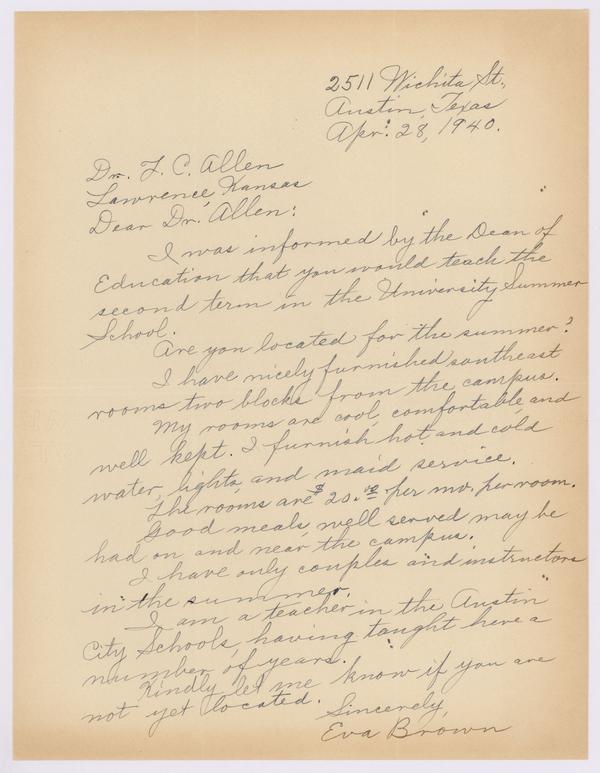 2511 Wichita St.,
Austin, Texas
Apr. 28, 1940.
Dr. F. C. Allen
Lawrence, Kansas
Dear Dr. Allen:
I was informed by the Dean of
Education that you would teach the
second term in the University Summer
School.
Are you located for the summer?
I have nicely furnished southeast
rooms two blocks from the campus.
My rooms are cool, comfortable, and
well kept. I furnish hot and cold
water, lights, and maid service.
The rooms are $20.00 per mo. per room.
Good meals, well served may be
had on and near the campus.
I have only couples and instructors
in the summer.
I am a teacher in the Austin
City Schools, having taught here a
number of years.
Kindly let me know if you are
not yet located.
Sincerely,
Eva Brown